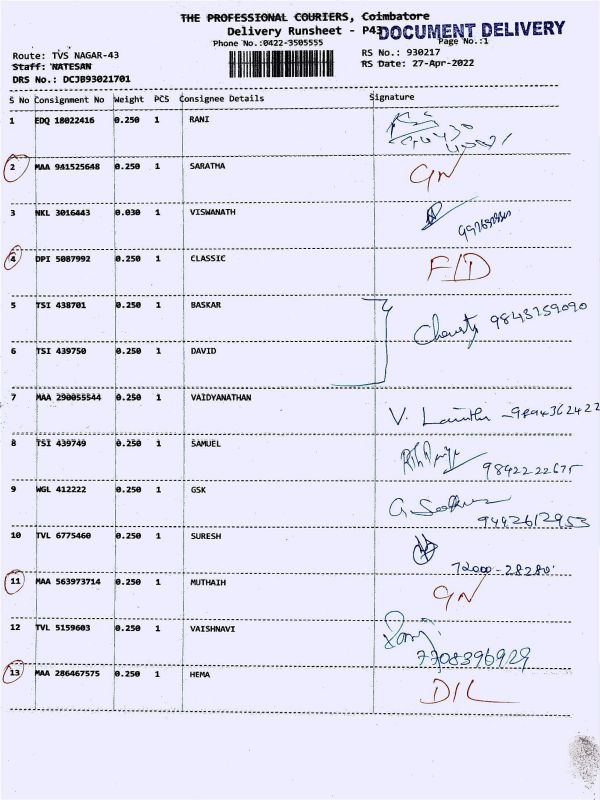 THE PROFESSIONAL COURIERS, Coimbatore
Delivery Runsheet - P43
DOCUMENT DELIVERY
Phone No.:0422-3505555
Page No.:1
Route: TVS NAGAR-43
RS No.: 930217
Staff: NATESAN
RS Date: 27-Apr-2022
DRS No.: DCJB93021701
S No Consignment No Weight PCS Consignee Details Signature
1 EDQ 18022416 0.250 1 RANI
2 MAA 941525648 0.250 1 SARATHA GN
3 NKL 3016443 0.030 1 VISWANATH
4 DPI 5087992 0.250 1 CLASSIC F/D
5 TSI 438701 0.250 1 BASKAR
9843759090
6 TSI 439750 0.250 1 DAVID
7 MAA 290055544 0.250 1 VAIDYANATHAN
V. - 9894362422
8 TSI 439749 0.250 1 SAMUEL
9842222675
9 WGL 412222 0.250 1 GSK
9442612953
10 TVL 6775460 0.250 1 SURESH
72000-28280
11 MAA 563973714 0.250 1 MUTHAIH GN
12 TVL 5159603 0.250 1 VAISHNAVI
7708396929
13 MAA 286467575 0.250 1 HEMA D/L